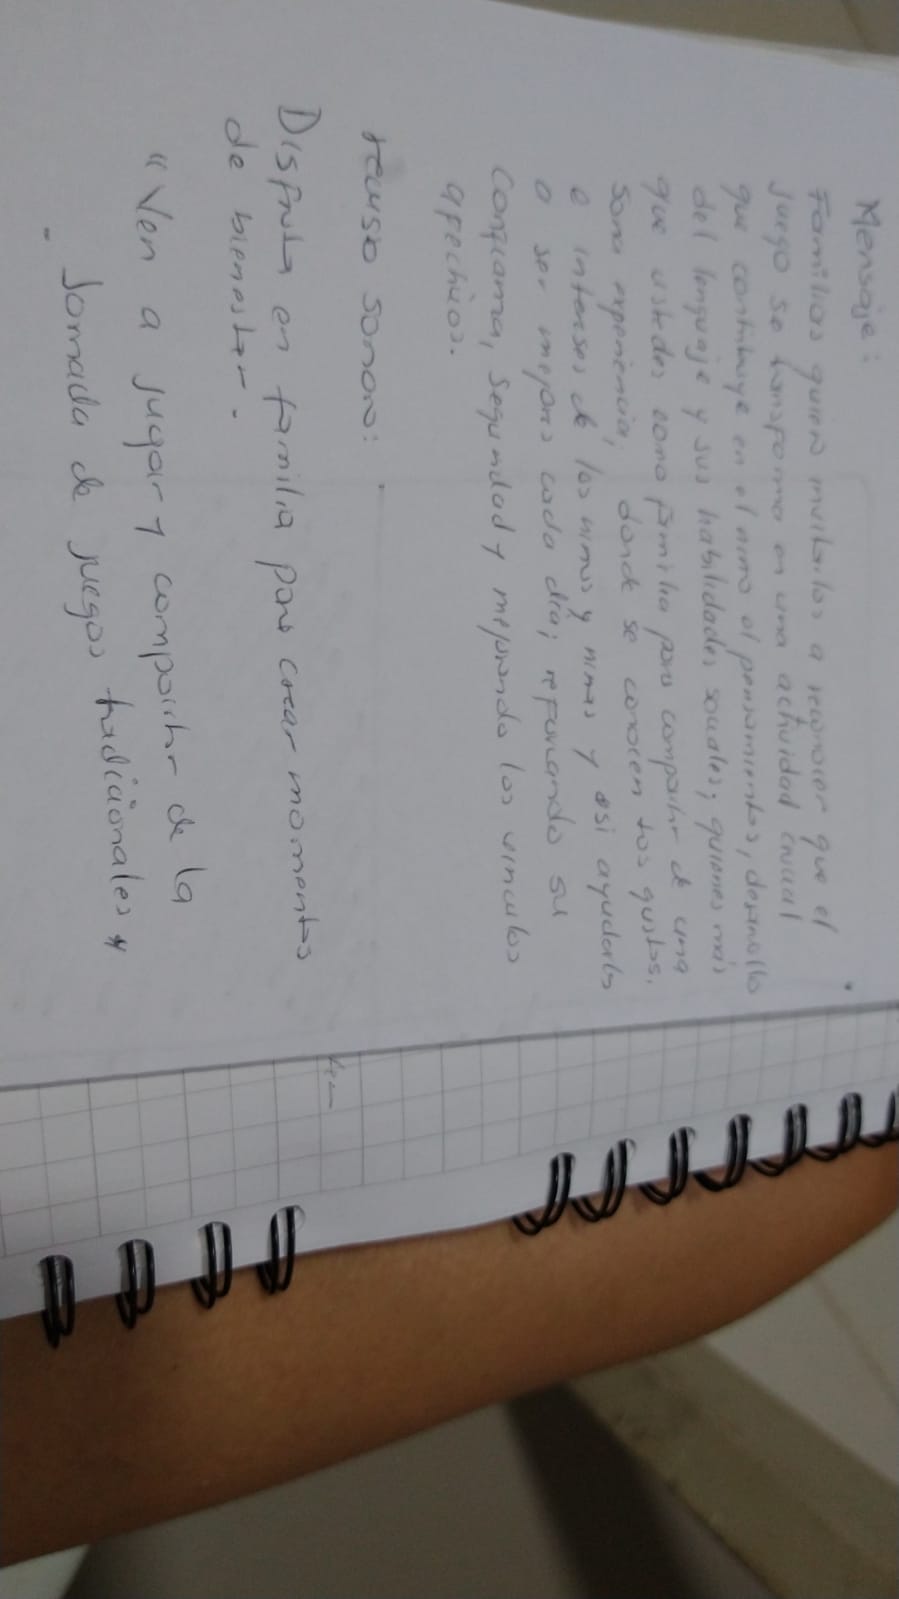 Mensaje:
Familias quiero invitarlos a reconocer que el
juego se transforma en una actividad crucial
que contribuye en el niño el pensamiento, desarrollo
del lenguaje y sus habilidades sociales; quienes más
que ustedes como familia para compartir de una
sana experiencia, donde se conocen los gustos,
e interses de los niños y niñas y asi ayudarlos
a ser mejores cada día; reforzando su
confianza, seguridad y mejorando los vinculos
afectivos.
recurso sonoro:
Disfruta en familia para crear momentos
de bienestar.
"Ven a jugar y compartir de la
Jornada de juegos tradicionales y